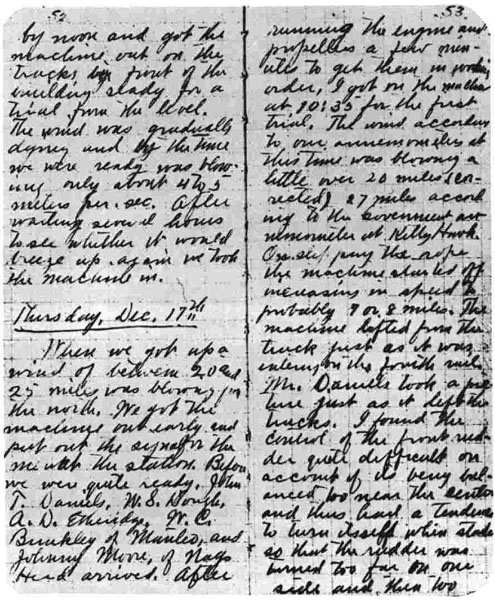 52
by noon and got the
machine out on the
tracks in front of the
building ready for a
trial from the level.
The wind was gradually
dying and by the time
we were ready was blow-
ing only about 4 to 5
meters per sec. After
waiting several hours
to see whether it would
breeze up again we took
the machine in.
Thursday, Dec. 17th
When we got up a
wind of between 20 and
25 miles was blowing from
the north. We got the
machine out early and
put out the signal for the
men at the station. Before
we were quite ready, John
T. Daniels, W. S. Dough,
A. D. Etheridge, W. C.
Brinkley of Manteo, and
Johnny Moore, of Nags
Head arrived. After
53
running the engine and
propellers a few min-
utes to get them in working
order, I got on the machine
at 10:35 for the first
trial. The wind according
to our anemometers at
this time was blowing a
little over 20 miles (cor-
rected) 27 miles accord-
ing to the Government an-
emometer at Kitty Hawk.
On slipping the rope
the machine started off
increasing in speed to
probably 7 or 8 miles. The
machine lifted from the
truck just as it was
entering on the fourth rail.
Mr. Daniels took a pic-
ture just as it left the
tracks. I found the
control of the front rud-
der quite difficult on
account of its being bal-
anced too near the center
and thus had a tendency
to turn itself when started
so that the rudder was
turned too far on one
side and then too